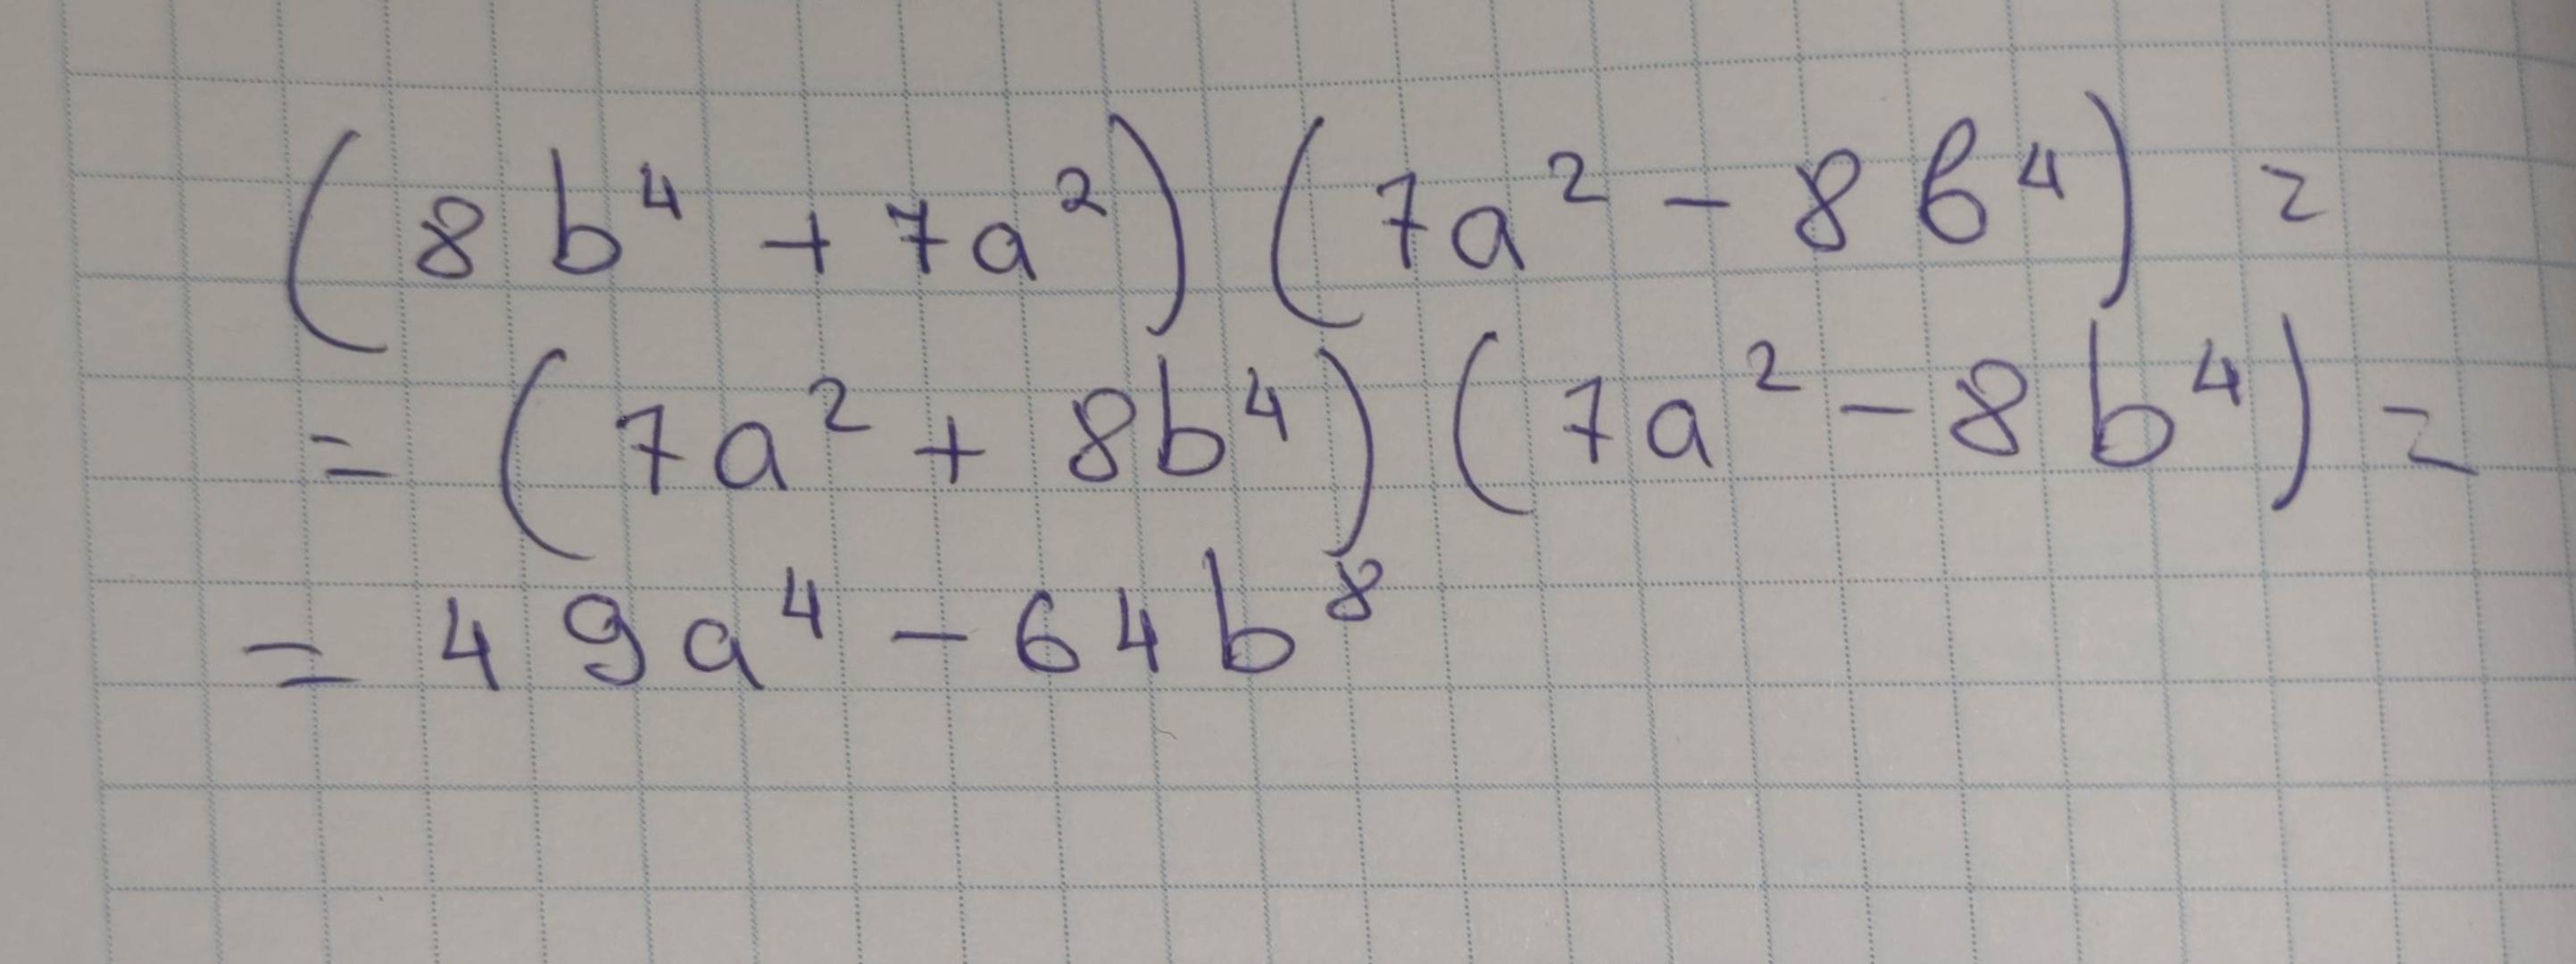 (8b⁴ + 7a²)(7a² - 8b⁴) =
= (7a² + 8b⁴)(7a² - 8b⁴) =
= 49a⁴ - 64b⁸